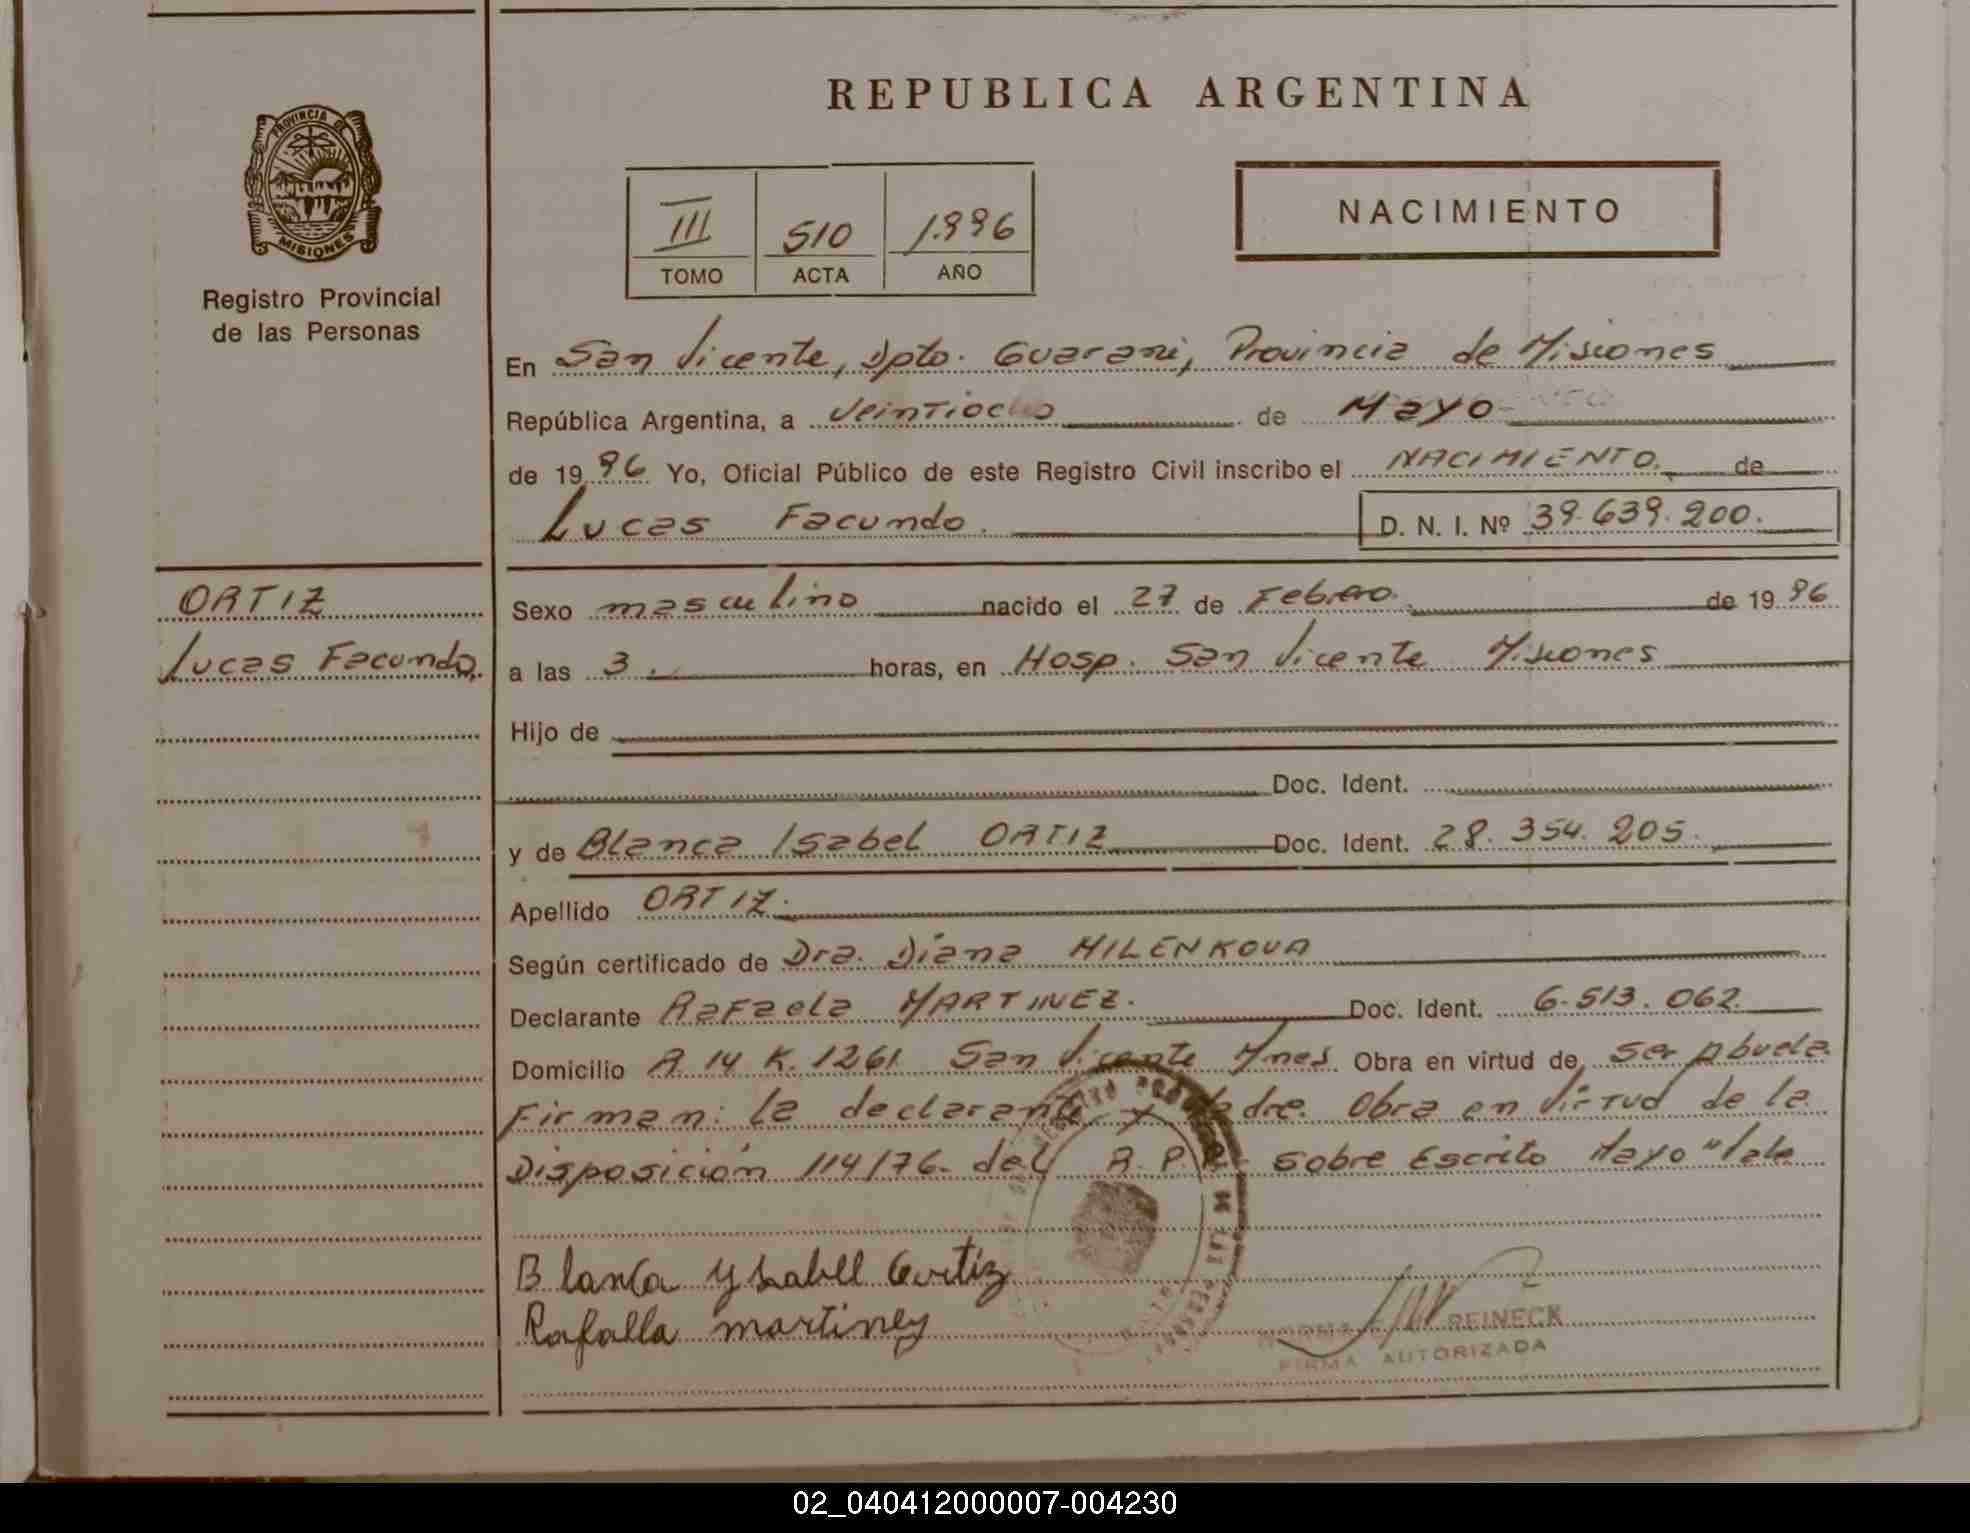 REPUBLICA ARGENTINA
PROVINCIA DE
MISIONES
Registro Provincial
de las Personas
III 510 1.996
TOMO ACTA AÑO
NACIMIENTO
En San Vicente, Dpto. Guarani, Provincia de Misiones
República Argentina, a Veintiocho de Mayo
de 1996 Yo, Oficial Público de este Registro Civil inscribo el NACIMIENTO. de
Lucas Facundo. D. N. I. Nº 39.639.200.
ORTIZ
Lucas Facundo.
Sexo masculino nacido el 27 de Febrero. de 1996
a las 3. horas, en Hosp. San Vicente Misiones
Hijo de
Doc. Ident.
y de Blanca Isabel ORTIZ Doc. Ident. 28.354.205.
Apellido ORTIZ.
Según certificado de Dra. Diana MILENKOVA
Declarante Rafaela MARTINEZ. Doc. Ident. 6.513.062.
Domicilio R 14 K. 1261 San Vicente Mnes. Obra en virtud de ser Abuela.
Firman: la declarante y Madre. Obra en Virtud de la
Disposición 114/76. del R.P.P. Sobre Escrito Mayo "Vale
Blanca Ysabel Ortiz
Rafaela martinez
NORMA REINECK
FIRMA AUTORIZADA
02_040412000007-004230